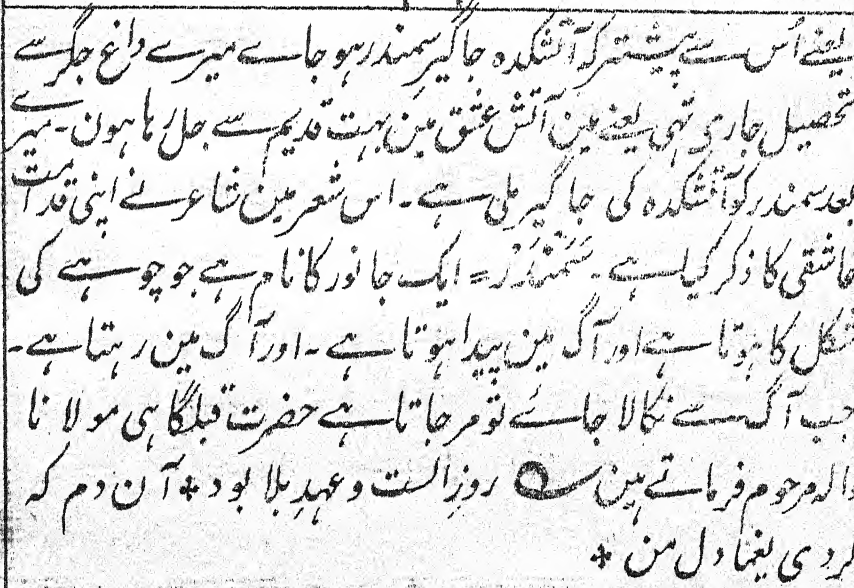 یعنے اُس سے پیشتر کہ آتشکدہ جاگیرِ سمندر ہو جاے میرے داغ جگر سے
تحصیل جاری تہی یعنے مین آتش عشق مین بہت قدیم سے جل رہا ہون۔ میرے
بعد سمندر کو آتشکدہ کی جاگیر ملی ہے۔ اس شعر مین شاعر نے اپنی قدامت
عاشقی کا ذکر کیا ہے۔ سَمَنْدَرْ = ایک جانور کا نام ہے جو چوہے کی
شکل کا ہوتا ہے اور آگ مین پیدا ہوتا ہے۔ اور آگ مین رہتا ہے۔
جب آگ سے نکالا جائے تو مر جاتا ہے حضرت قبلگاہی مولانا
والہ مرحوم فرماتے ہین ؎ روزِ الست و عہدِ بلا بود * آن دم کہ
کردی یغما دل من *